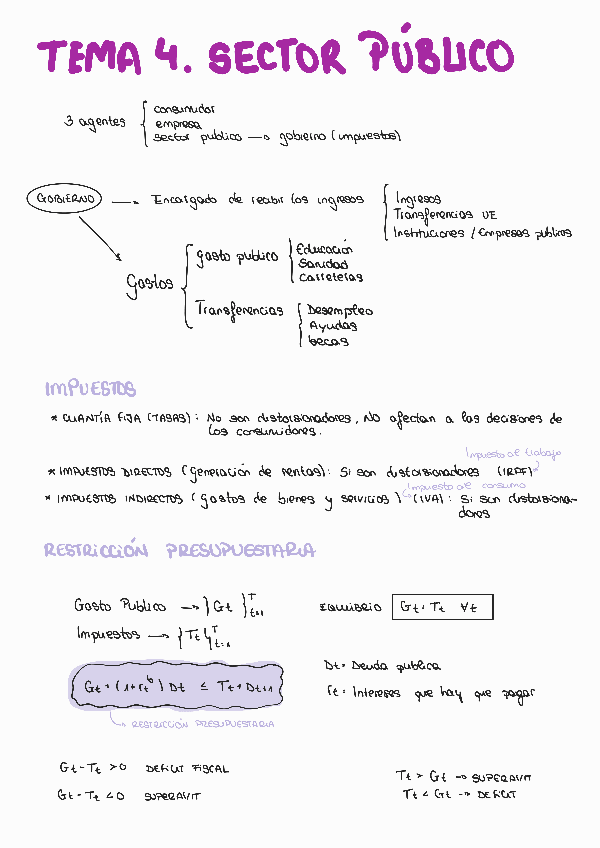 TEMA 4. SECTOR PÚBLICO
3 agentes { consumidor
empresa
sector publico → gobierno (impuestos)
GOBIERNO → Encargado de recibir los ingresos { Ingresos
Transferencias UE
Instituciones / Empresas publicas
Gastos { gasto publico { Educación
Sanidad
Carreteras
Transferencias { Desempleo
Ayudas
becas
IMPUESTOS
* CUANTÍA FIJA (TASAS): No son distorsionadores, NO afectan a las decisiones de
los consumidores.
Impuesto al trabajo
* IMPUESTOS DIRECTOS (generación de rentas): Si son distorsionadores (IRPF)
Impuesto al consumo
* IMPUESTOS INDIRECTOS (gastos de bienes y servicios) (IVA): Si son distorsiona-
dores
RESTRICCIÓN PRESUPUESTARIA
Gasto Publico → {Gt}ᵀt=1 EQUILIBRIO Gt = Tt ∀t
Impuestos → {Tt}ᵀt=1
Dt = Deuda publica
Gt + (1+rtᵇ) Dt ≤ Tt + Dt+1
rt = Intereses que hay que pagar
RESTRICCIÓN PRESUPUESTARIA
Gt - Tt > 0 DEFICIT FISCAL
Tt > Gt → SUPERAVIT
Gt - Tt < 0 SUPERAVIT
Tt < Gt → DEFICIT